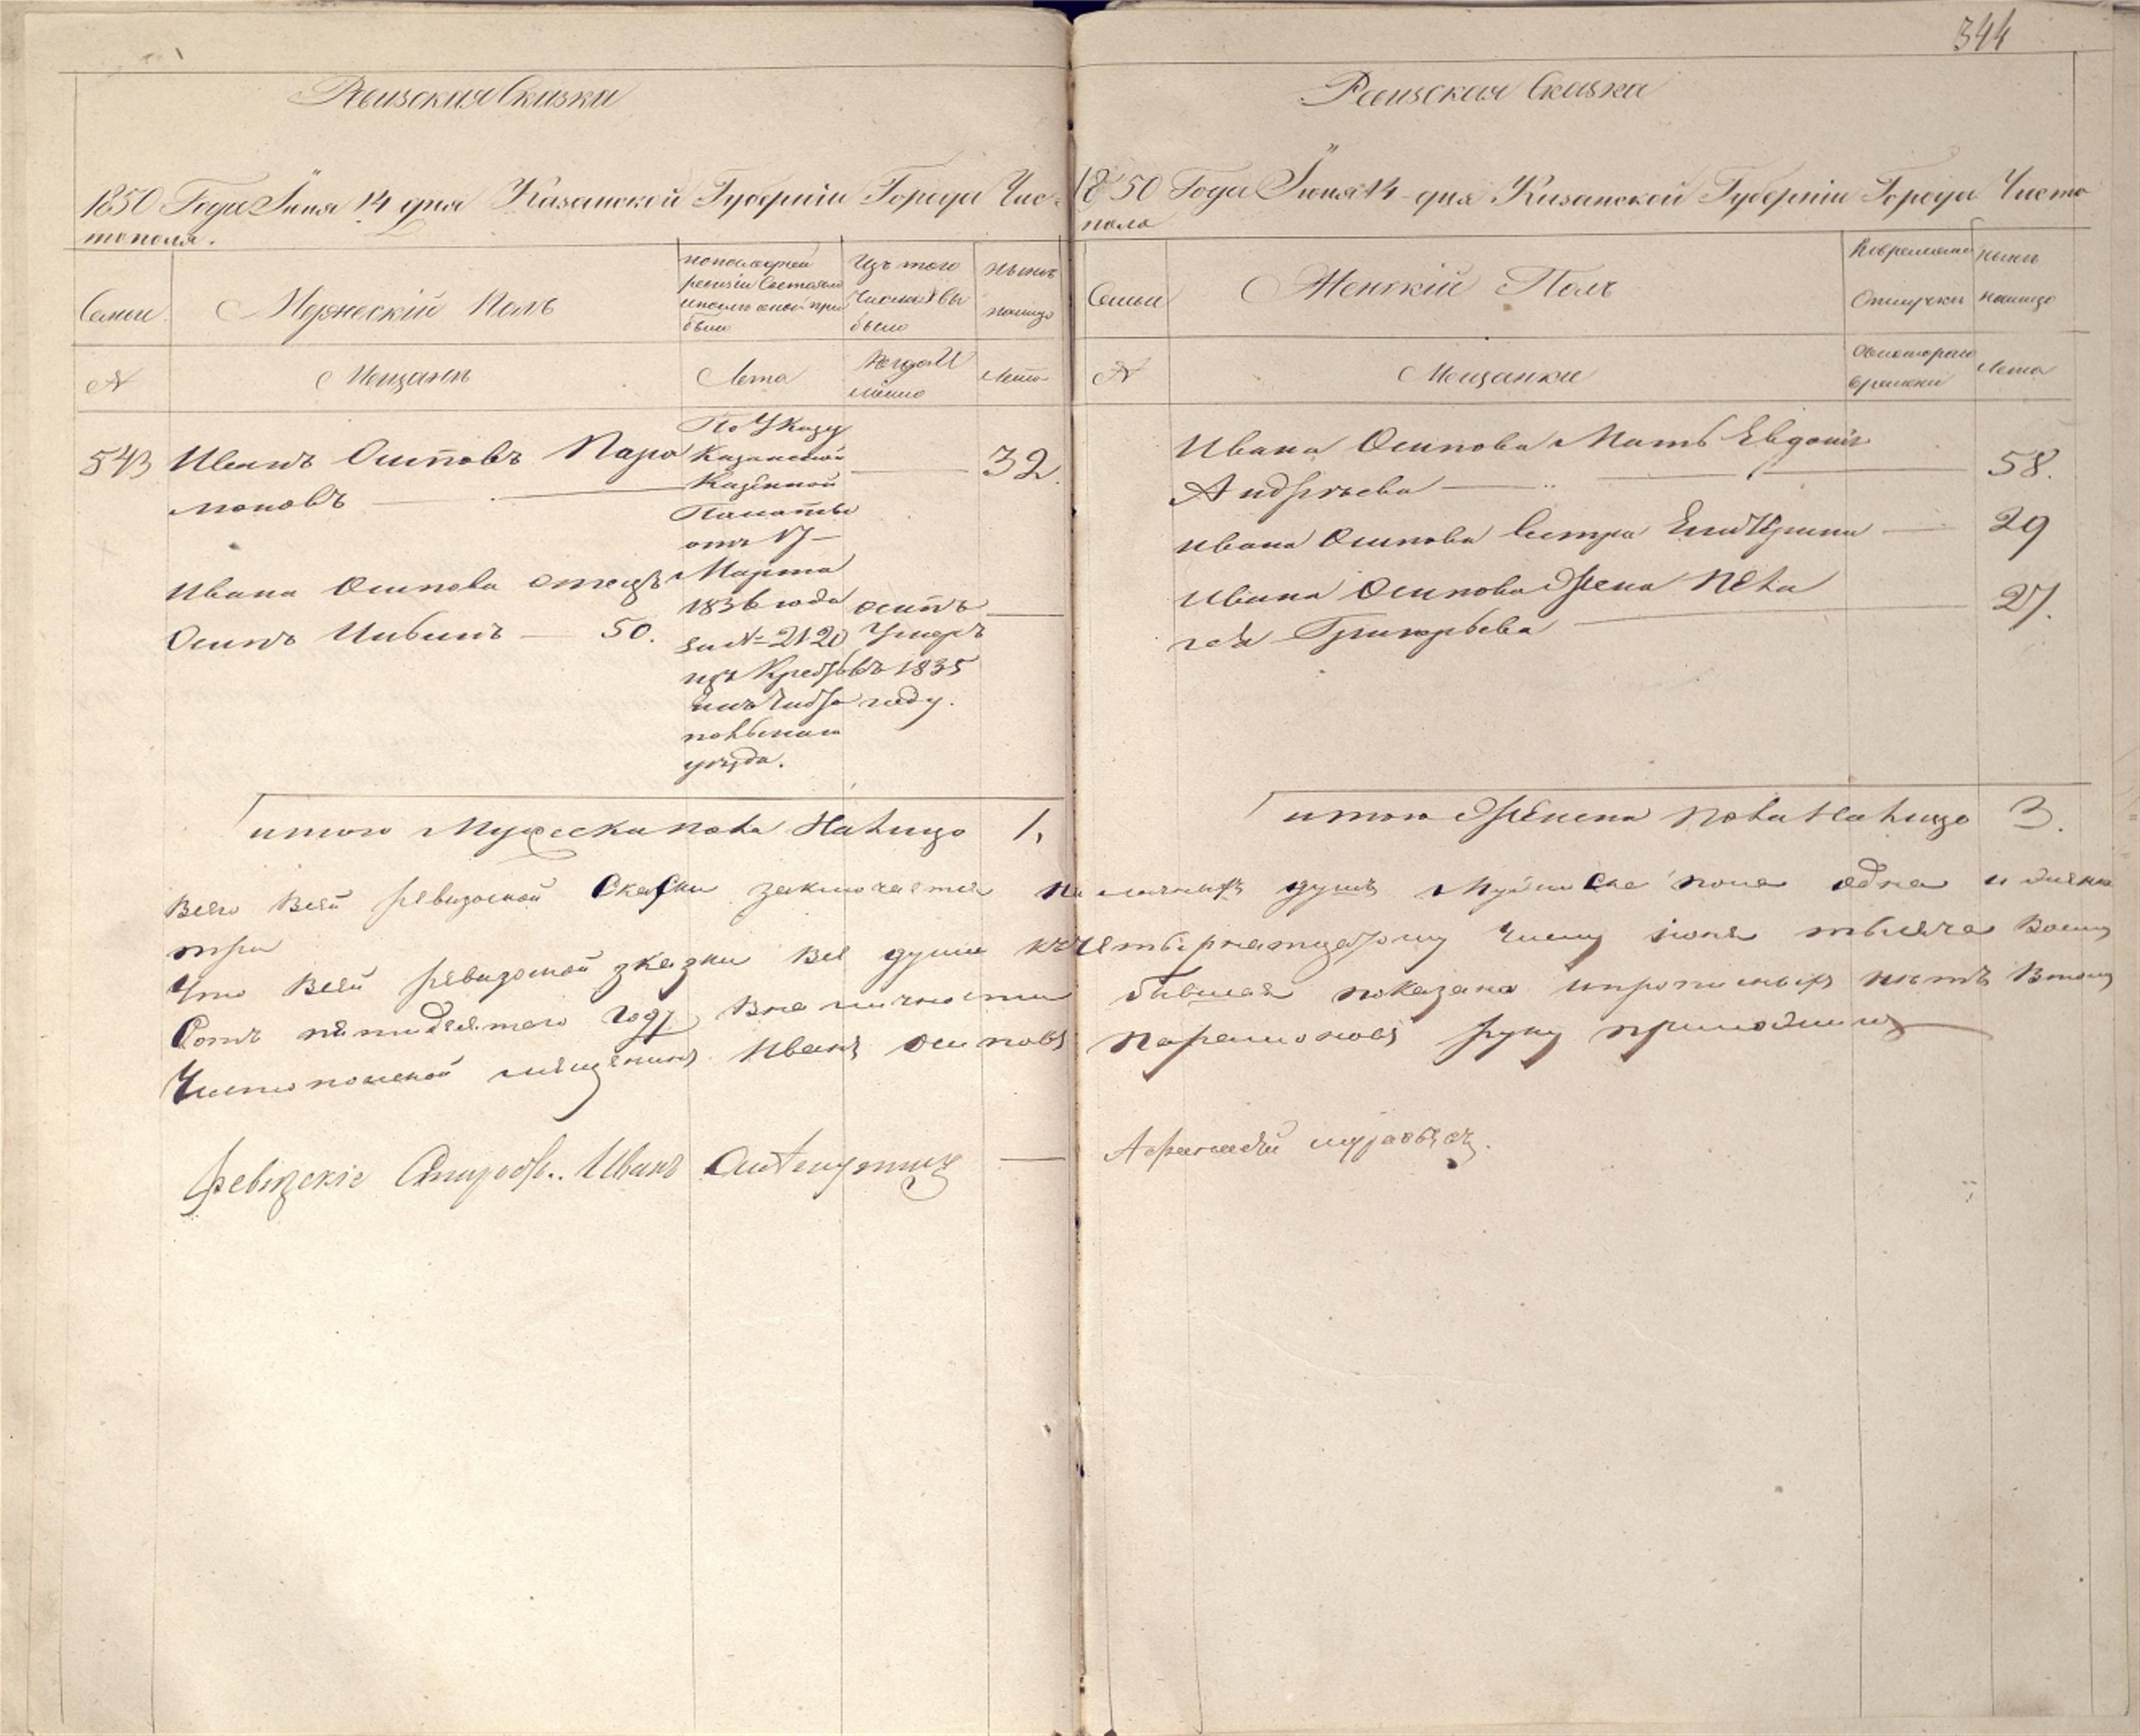 344
Ревизская Сказка
1850 Года Июня 14 дня Казанской Губерніи Города Чис-
тополя.
Семьи
Мужескій Полъ
по последней
ревизіи состояло
и после оной при
было
Изъ того
числа вы
было
ныне
налицо
№
Мещанъ
Лета
Когда И
менно
Лета
543 Иванъ Осиповъ Пара
моновъ
По Указу
Казанской
Казенной
Палаты
отъ 17
Марта
1836 года
за № 2120
изъ Кресть
янъ Чисто
польскаго
уезда.
32.
Ивана Осипова отецъ
Осипъ Ивановъ 50.
осипъ
Умеръ
въ 1835
году.
итого Мужеска пола Налицо 1.
Ревизская Сказка
1850 Года Июня 14 дня Казанской Губерніи Города Чисто
поля
Семьи
Женскій Полъ
Во временной
Отлучке
ныне
налицо
№
Мещанки
Съ котораго
времени
Лета
Ивана Осипова Мать Евдокия
Андреева 58.
Ивана Осипова Сестра Екатерина 29
Ивана Осипова Жена Пела
гея Григорьева 27.
итого Женска пола Налицо 3.
Всего Всей ревизской Скаски заключается на личныхъ душъ Мужеска пола одна и женска
три
Что Всей ревизской зказки Все души къ четырнатцатому числу июня тысяча Восем
Сотъ пятидесятого году Вна личности бывшая показана ипрописныхъ нетъ Втому
Чистопольской мещенинъ Иванъ осиповъ Парамоновъ руку приложилъ
ревизские Старосты.. Иванъ
Афанасей муравьевъ.